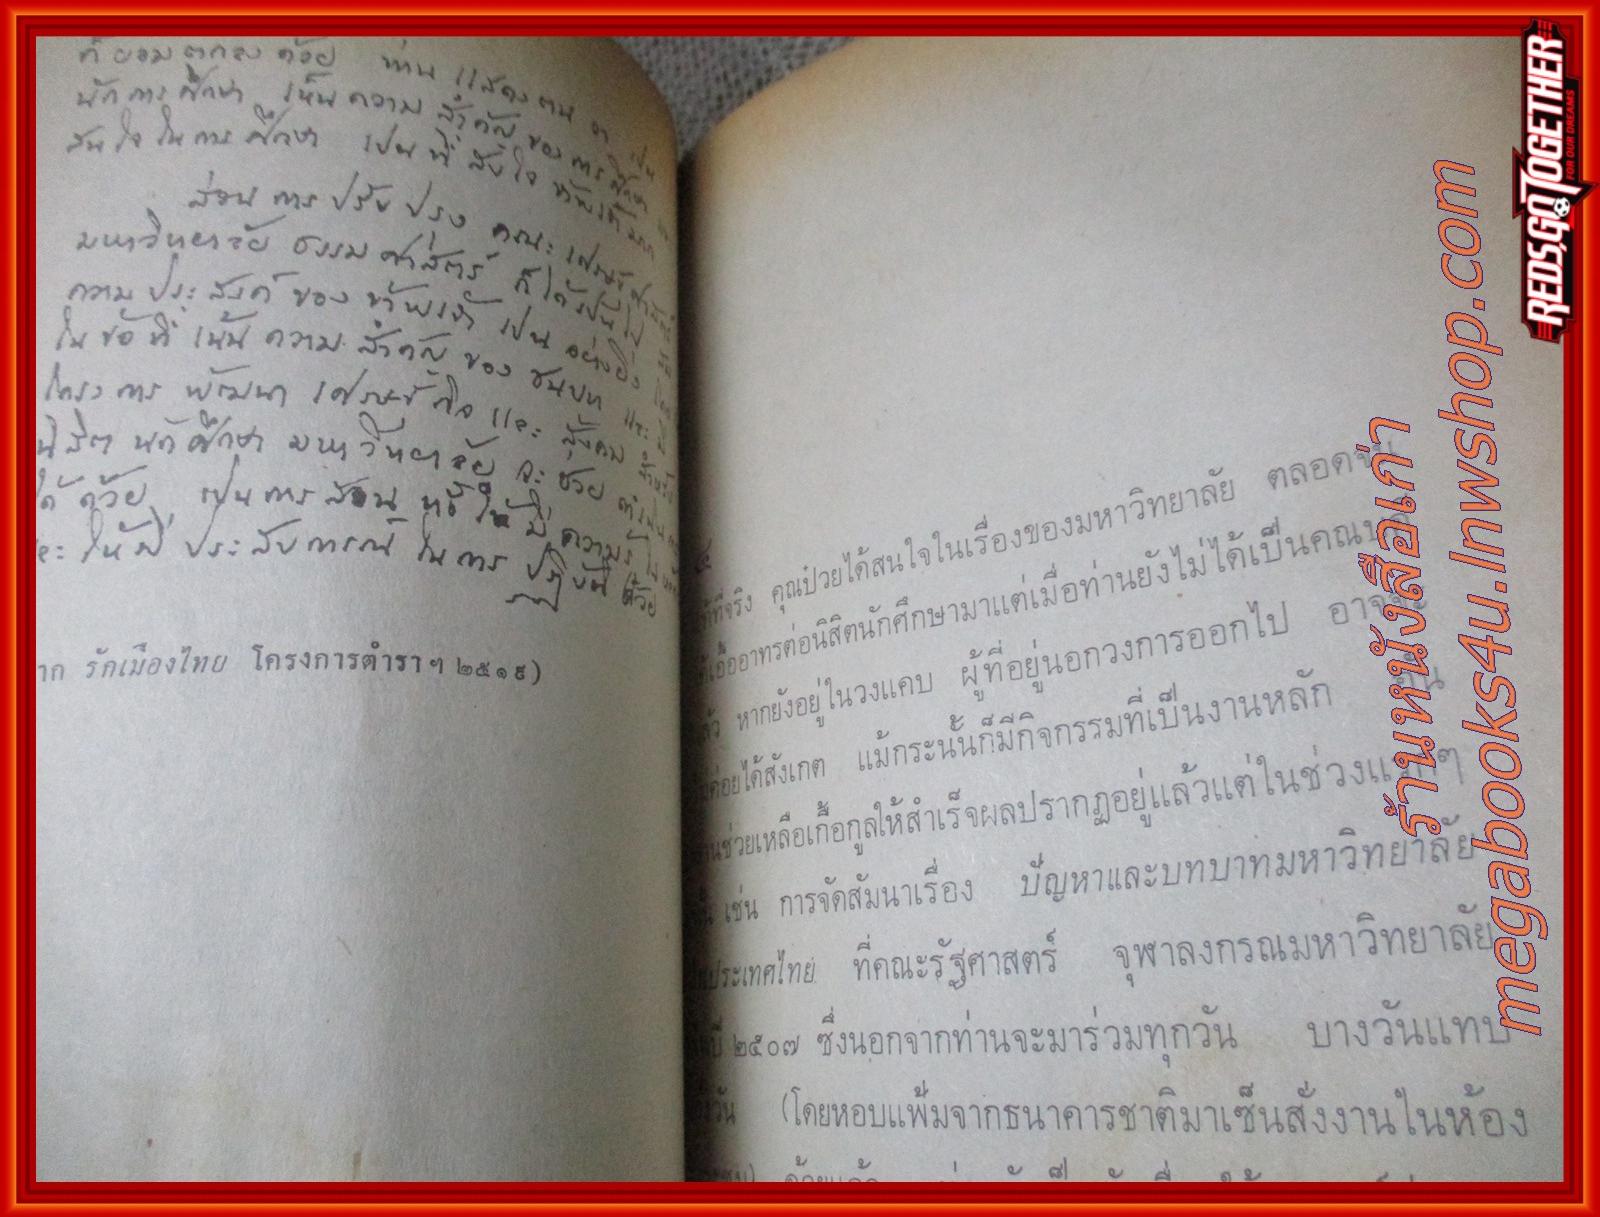 ก็ยอมตกลงด้วย ท่านแสดงตนว่าเป็น
นักการศึกษา เห็นความสำคัญของการศึกษา
สนใจในการศึกษา เป็นที่
ส่วนการปรับปรุง คณะเศรษฐศาสตร์
มหาวิทยาลัยธรรมศาสตร์ ก็ได้เป็นไป
ความประสงค์ของข้าพเจ้า เป็นอย่างยิ่ง
ในข้อที่เน้นความสำคัญของชนบท และ
โครงการพัฒนาเศรษฐกิจและสังคม
นิสิตนักศึกษามหาวิทยาลัยจะช่วย
ได้ด้วย เป็นการสอน ให้มีความรู้
และให้มีประสบการณ์ในการปฏิบัติด้วย
าก รักเมืองไทย โครงการตำราฯ ๒๕๑๙)
ที่จริง คุณป๋วยได้สนใจในเรื่องของมหาวิทยาลัย ตลอดจน
เอื้ออาทรต่อนิสิตนักศึกษามาแต่เมื่อท่านยังไม่ได้เป็นคณบดี
หากยังอยู่ในวงแคบ ผู้ที่อยู่นอกวงการออกไป อาจจะ
ไม่ค่อยได้สังเกต แม้กระนั้นก็มีกิจกรรมที่เป็นงานหลัก อัน
ท่านช่วยเหลือเกื้อกูลให้สำเร็จผลปรากฏอยู่แล้วแต่ในช่วงแรกๆ
เช่น การจัดสัมนาเรื่อง ปัญหาและบทบาทมหาวิทยาลัย
ในประเทศไทย ที่คณะรัฐศาสตร์ จุฬาลงกรณมหาวิทยาลัย
ปี ๒๕๐๗ ซึ่งนอกจากท่านจะมาร่วมทุกวัน บางวันแทบ
วัน (โดยหอบแฟ้มจากธนาคารชาติมาเซ็นสั่งงานในห้อง
REDSGOTOGETHER
FOR OUR DREAMS
ร้านหนังสือเก่า
megabooks4u.lnwshop.com